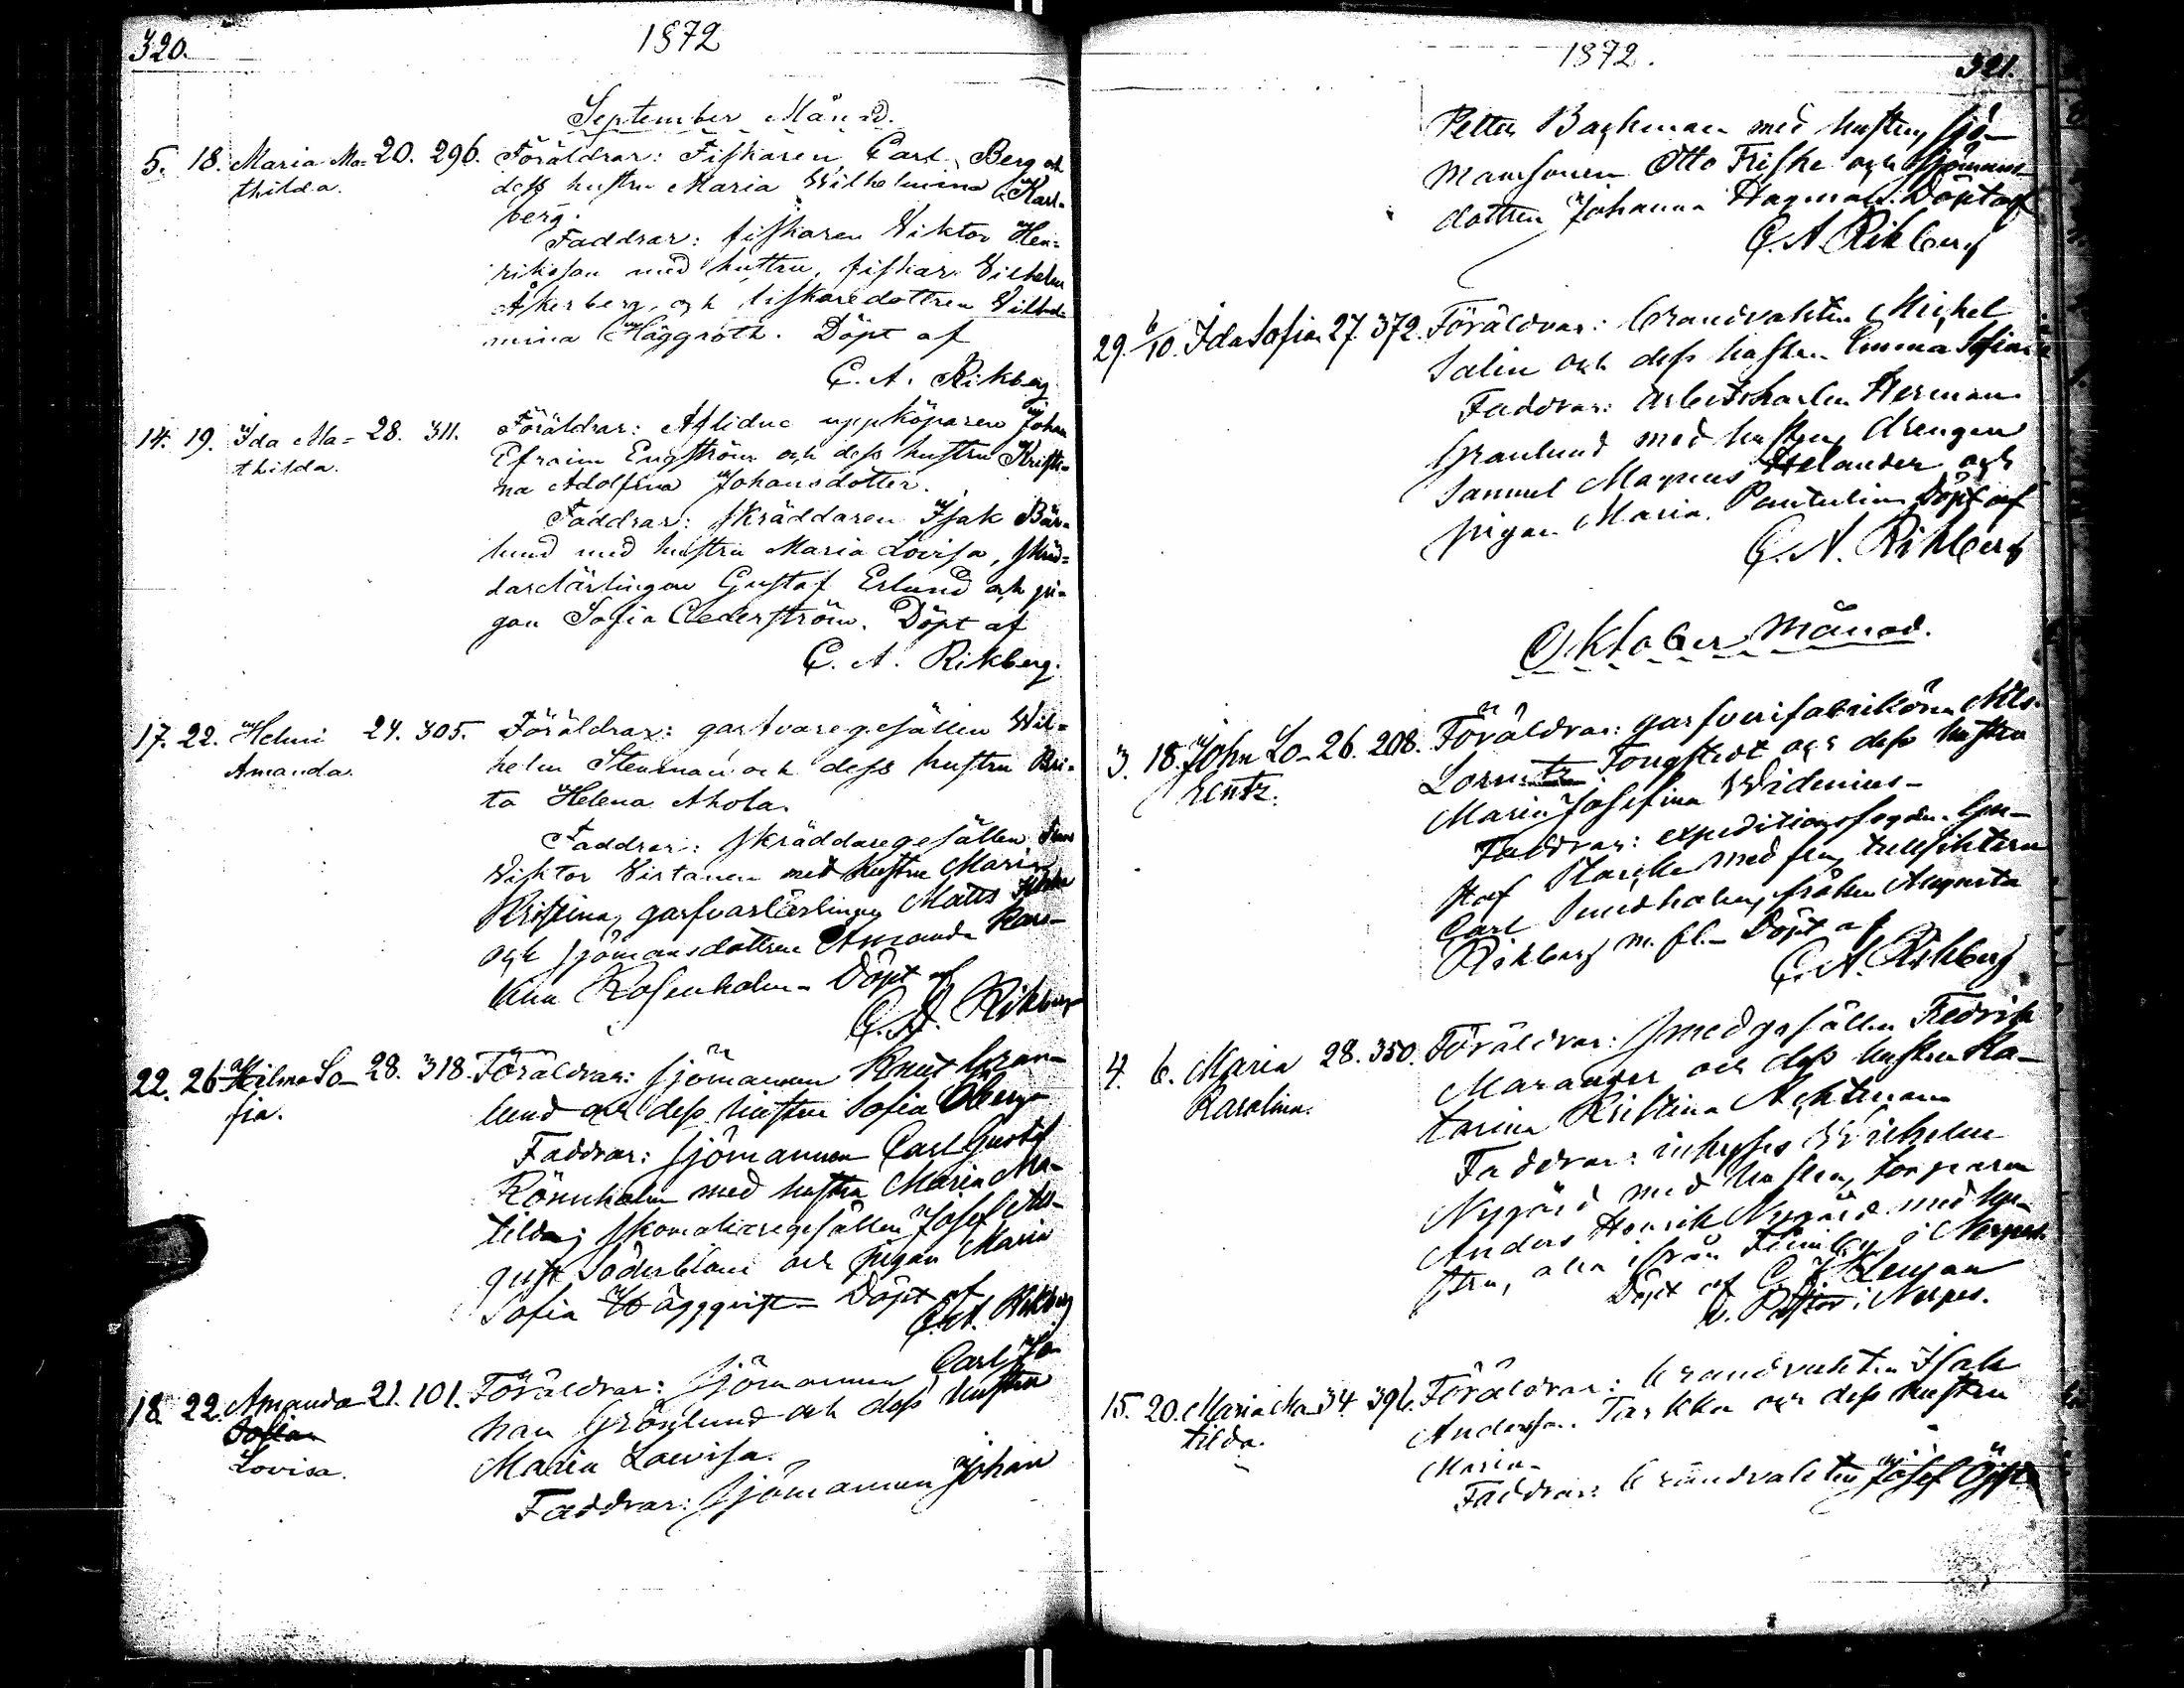 320.
1872
September Månad.
5. 18. Maria Ma- 20. 296. Föräldrar: Fiskaren Carl Berg och
thilda. dess hustru Maria Wilhelmina Karl-
berg.
Faddrar: fiskaren Viktor Hen-
riksson med hustru, fiskar. Vilhelm
Åkerberg, och fiskaredottren Vilhel-
mina Häggroth. Döpt af
C. A. Rikberg
14. 19. Ida Ma- 28. 311. Föräldrar: Aflidne uppköparen Johan
thilda. Efraim Engström och dess hustru Kristi-
na Adolfina Johansdotter.
Faddrar: skräddaren Isak Bär-
lund med hustru Maria Lovisa, skräd-
darelärlingen Gustaf Erlund och pi-
gan Sofia Cederström. Döpt af
C. A. Rikberg.
17. 22. Helmi 24. 305. Föräldrar: garfvaregesällen Wil-
Amanda. helm Stenman och dess hustru Bri-
ta Helena Ahola.
Faddrar: skräddaregesällen
Viktor Virtanen med hustru Maria
Kristina, garfvarlärlingen Matts
och sjömansdottren Amanda Karo-
lina Rosenholm. Döpt af
C. A. Rikberg
22. 26 Hilma So- 28. 318. Föräldrar: sjömannen Knut Gran-
fia. lund och dess hustru Sofia Öberg
Faddrar: sjömannen Carl Gustaf
Rönnholm med hustru Maria Ma-
tilda; skomakaregesällen Josef Au-
gust Söderblom och pigan Maria
Sofia Häggqvist. Döpt af
C. A. Rikberg
18. 22. Amanda 21. 101. Föräldrar: sjömannen Carl Jo-
Sofia han Grönlund och dess hustru
Lovisa. Maria Lovisa.
Faddrar: sjömannen Johan
1872.
321.
Petter Backman med hustru, sjö-
mansonen Otto Friske och sjömans-
dottren Johanna Hagman. Döpt af
C. A. Rikberg
29. 6/10. Ida Sofia 27. 372. Föräldrar: brandvakten Michel
Salin och dess hustru Emma Sofia
Faddrar: arbetskarlen Herman
Granlund med hustru, drengen
Samuel Magnus Helander och
pigan Maria Döpt af
C. A. Rikberg
Oktober Månad.
3. 18. John Lo- 26. 208. Föräldrar: garfverifabrikören Nils
rentz. Lorentz Tongstedt och dess hustru
Maria Josefina Widenius.
Faddrar: expeditionsfogden Gu-
staf Starcke med fru,
Carl Smedholm, fröken Augusta
Rikberg m. fl. Döpt af
C. A. Rikberg
4. 6. Maria 28. 350. Föräldrar: smedgesällen Fredrik
Karolina. och dess hustru Ka-
tarina Kristina
Faddrar: inhyses Wilhelm
Nygård med hustru, torparen
Anders Henrik Nygård med hu-
stru, alla ifrån Finnby i Nerpes.
Döpt af
v. Pastor i Nerpes.
15. 20. Maria Ma- 34. 396. Föräldrar: brandvakten Isak
tilda. Andersson Tarkka och dess hustru
Maria.
Faddrar: brandvakten Josef